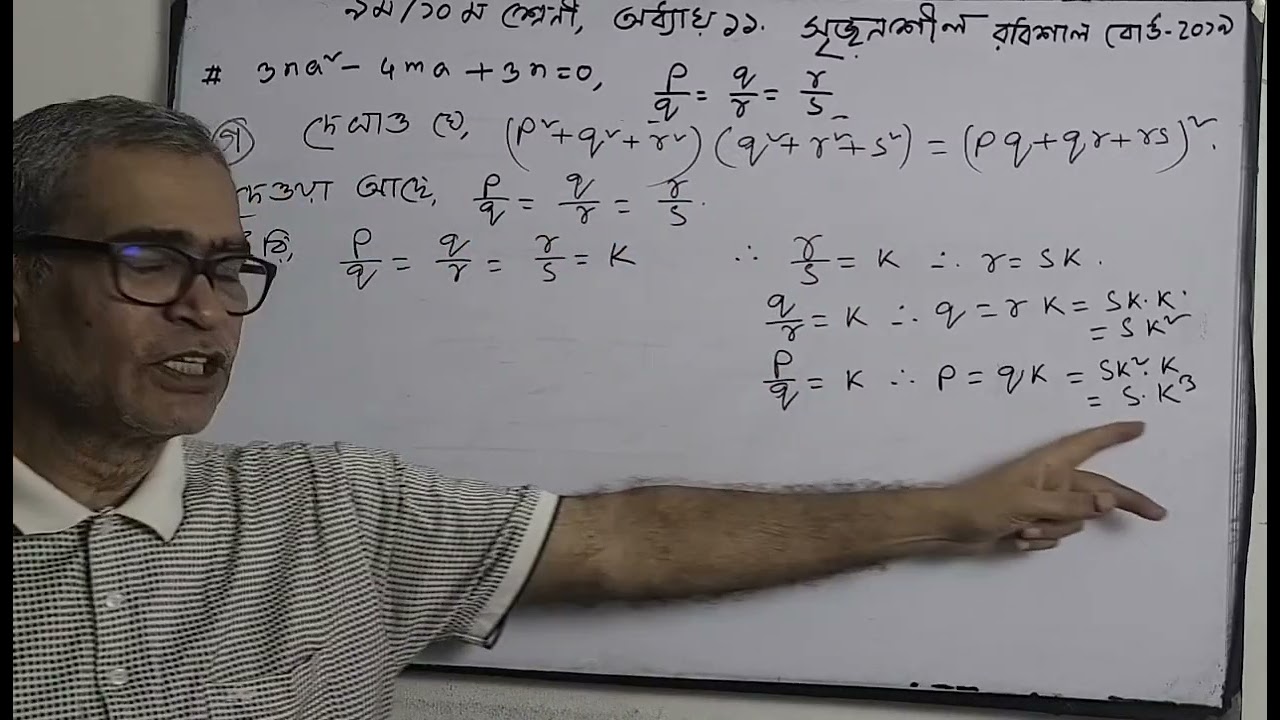 ৯ম/১০ম শ্রেনী, অধ্যায় ১১. সৃজনশীল বরিশাল বোর্ড-২০১৯
# 3na² - 4ma + 3n = 0, p/q = q/r = r/s
গ) দেখাও যে, (p² + q² + r²) (q² + r² + s²) = (pq + qr + rs)².
দেওয়া আছে, p/q = q/r = r/s.
p/q = q/r = r/s = K
∴ r/s = K ∴ r = SK.
q/r = K ∴ q = rK = SK.K.
= SK²
p/q = K ∴ p = qK = SK².K
= S.K³